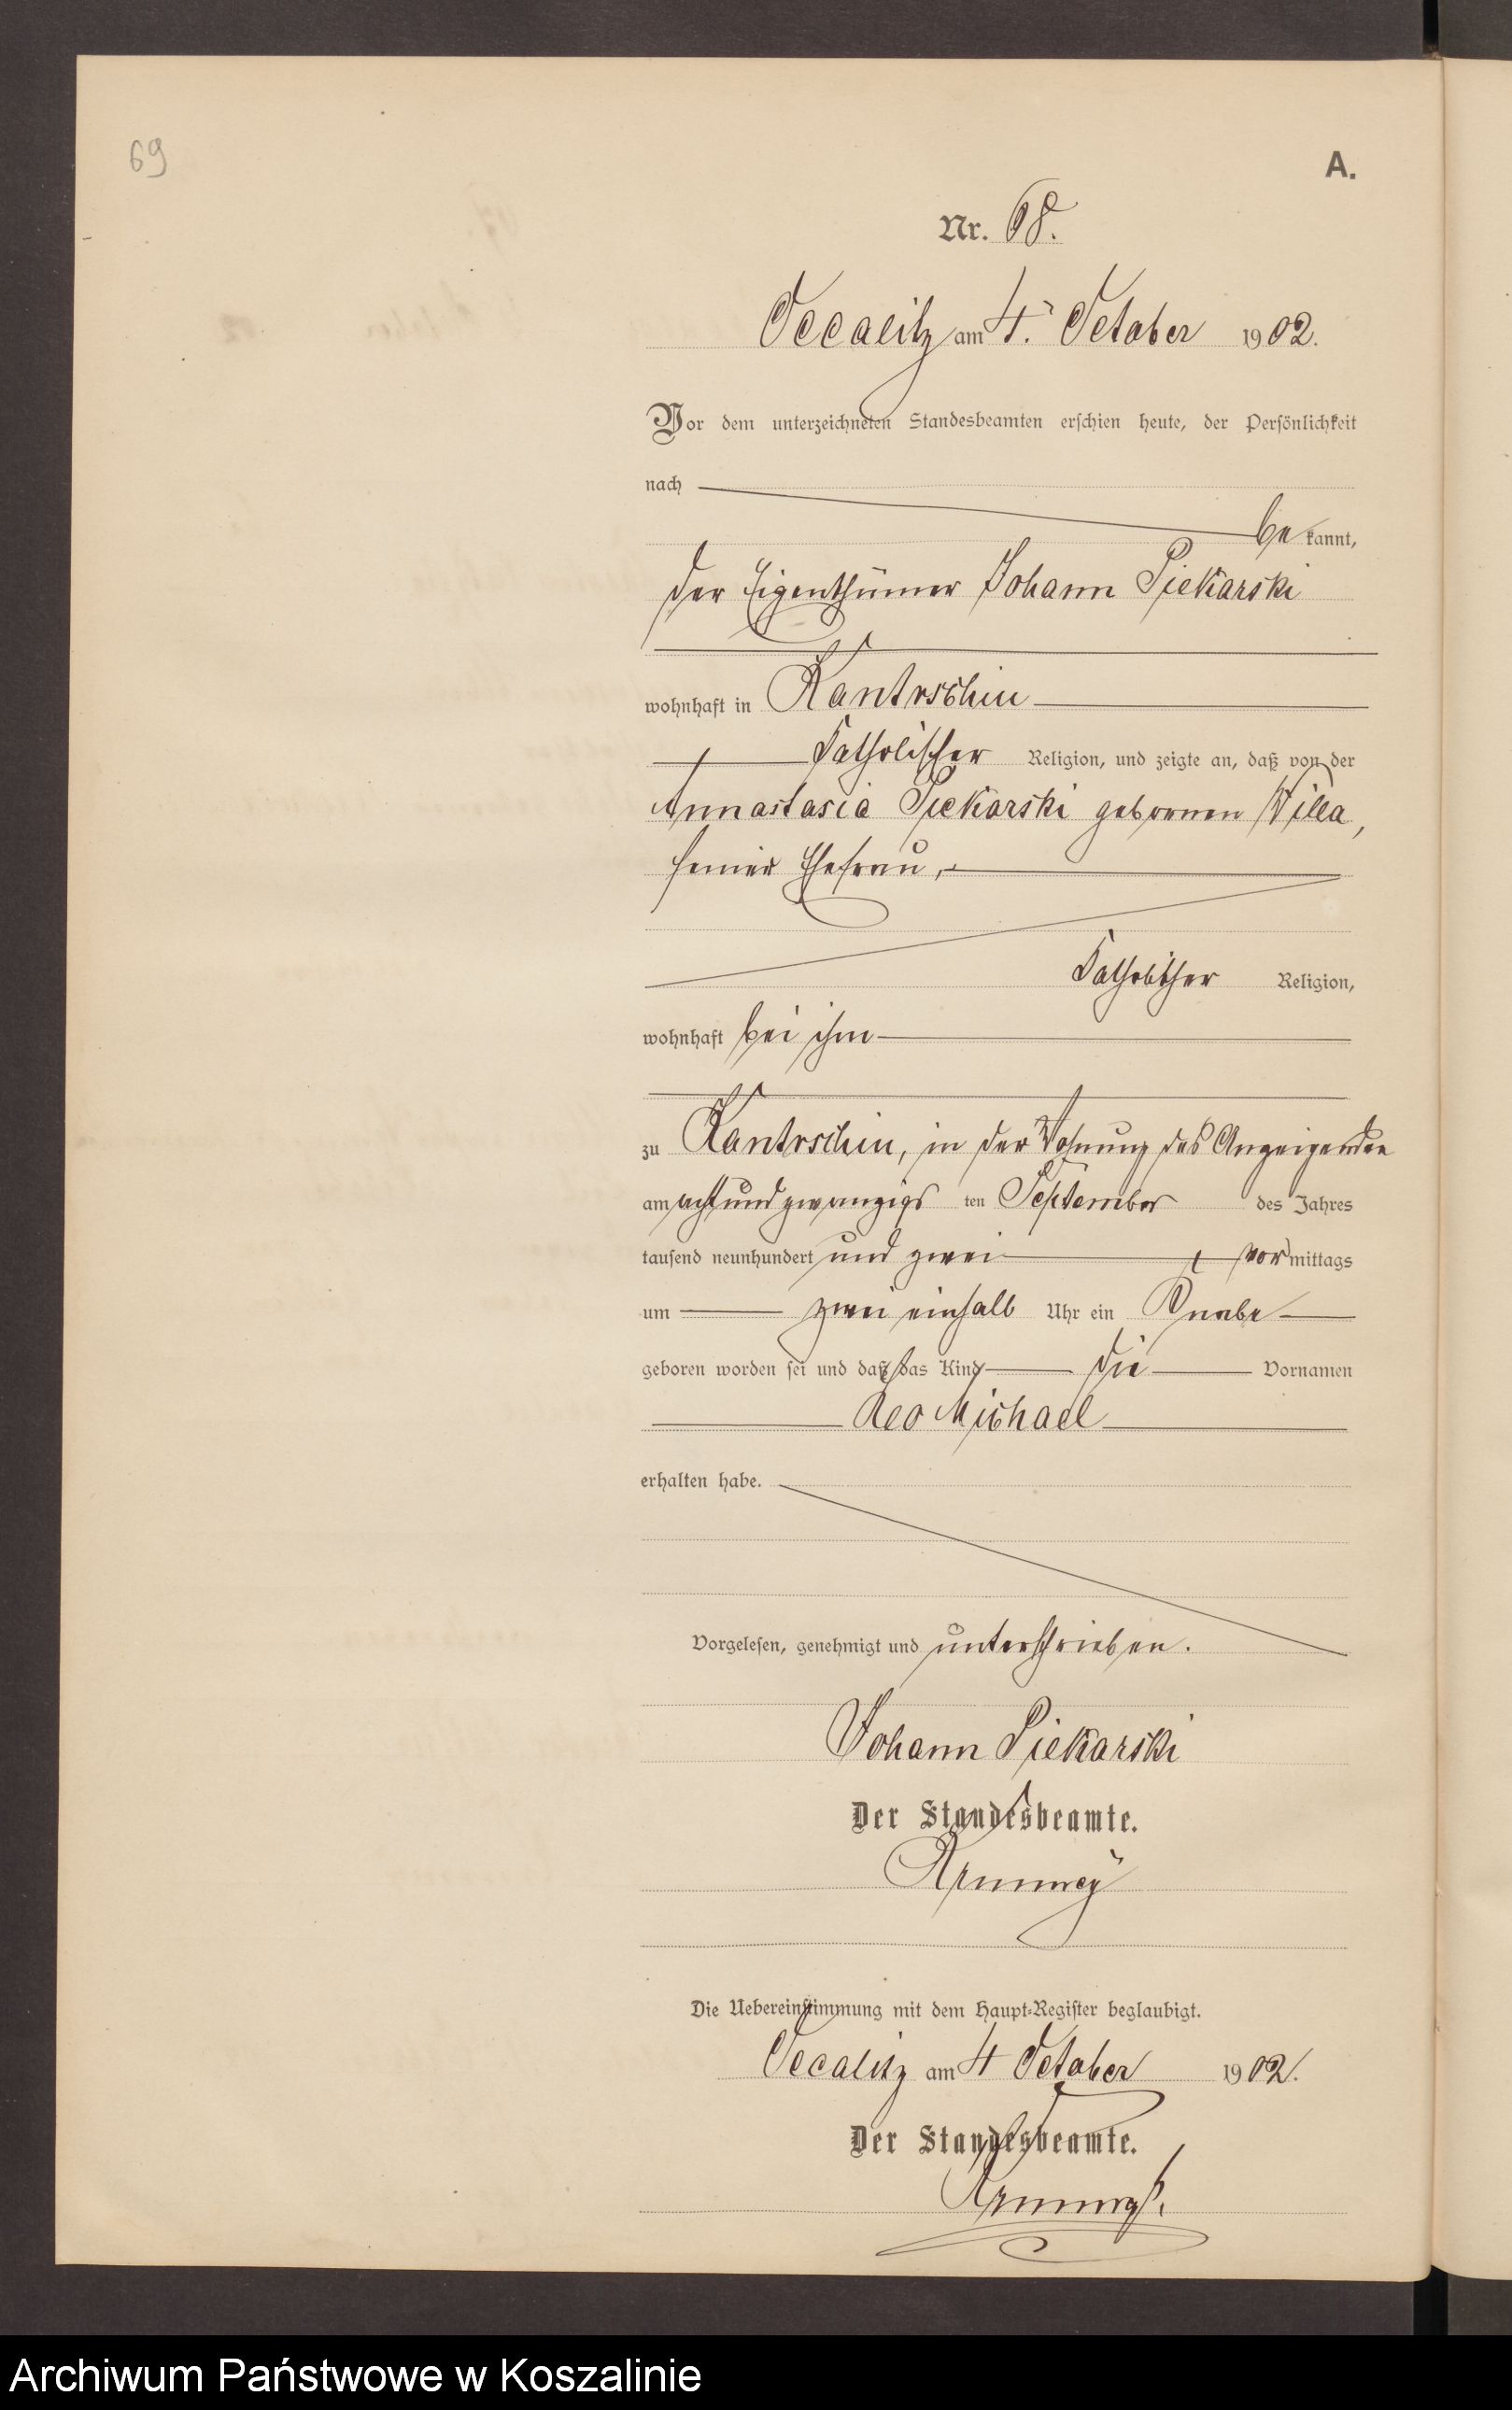 69
A.
Nr. 68.
Occalitz am 4. October 1902.
Vor dem unterzeichneten Standesbeamten erschien heute, der Persönlichkeit
nach
be kannt,
der Eigenthümer Johann Piekarski
wohnhaft in Kantrschin
katholischer Religion, und zeigte an, daß von der
Annastasia Piekarski gebornen Willa,
seiner Ehefrau,
katholischer Religion,
wohnhaft bei ihm
zu Kantrschin, in der Wohnung des Anzeigenden
am achtundzwanzigs ten September des Jahres
tausend neunhundert und zwei vor mittags
um zwei einhalb Uhr ein Knabe
geboren worden sei und daß das Kind die Vornamen
Leo Michael
erhalten habe.
Vorgelesen, genehmigt und unterschrieben.
Johann Piekarski
Der Standesbeamte.
Die Uebereinstimmung mit dem Haupt-Register beglaubigt.
Occalitz am 4 October 1902.
Der Standesbeamte.
Archiwum Państwowe w Koszalinie